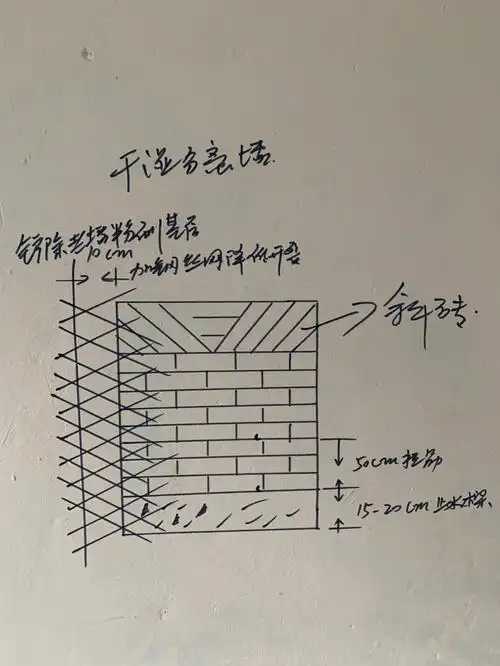 干湿分离墙
铲除老墙粉刷基层
10cm
加钢丝网降低开裂
斜砖
50cm 植筋
15-20cm 止水梁